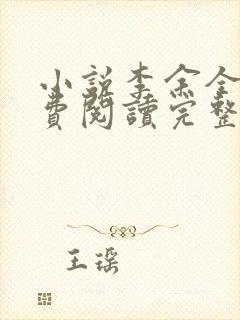 小說李余全
費閱讀完整
王琛